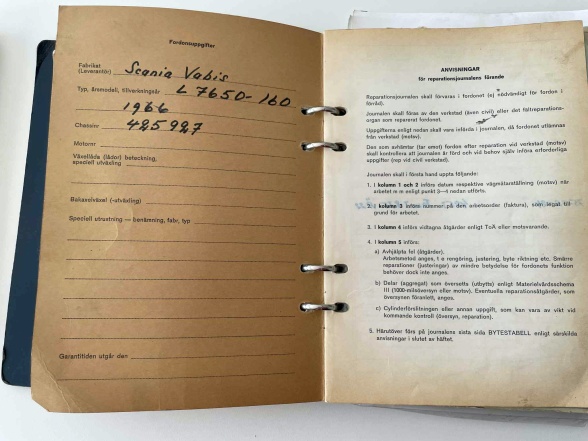 Fordonsuppgifter
Fabrikat
(Leverantör) Scania Vabis
Typ, årsmodell, tillverkningsår L 7650-160
1966
Chassinr 425927
Motornr
Växellåda (lådor) beteckning,
speciell utväxling
Bakaxelväxel (-utväxling)
Speciell utrustning — benämning, fabr, typ
Garantitiden utgår den
ANVISNINGAR
för reparationsjournalens förande
Reparationsjournalen skall förvaras i fordonet (e) nödvämligt för fordon i
förråd).
Journalen skall föras av den verkstad (även civil) eller det fältreparations-
organ som reparerat fordonet.
Uppgifterna enligt nedan skall vara införda i journalen, då fordonet utlämnas
från verkstad (motsv).
Den som avhämtar (tar emot) fordon efter reparation vid verkstad (motsv)
skall kontrollera att journalen är förd och vid behov själv införa erforderliga
uppgifter (rep vid civil verkstad).
Journalen skall i första hand uppta följande:
1. I kolumn 1 och 2 införs datum respektive vägmätarställning (motsv) när
arbetet m m enligt punkt 3—4 nedan utförts.
2. I kolumn 3 införs nummer på den arbetsorder (faktura), som legat till
grund för arbetet.
3. I kolumn 4 införs vidtagna åtgärder enligt ToA eller motsvarande.
4. I kolumn 5 införs:
a) Avhjälpta fel (åtgärder).
Arbetsmoled anges, t e rengöring, justering, byte riktning etc. Smärre
reparationer (justeringar) av mindre betydelse för fordonets funktion
behöver dock inte anges.
b) Delar (aggregat) som översetts (utbytts) enligt Materielvårdsschema
III (1000-milsöversyn eller motsv). Eventuella reparationsåtgärder, som
översynen föranlett, anges.
c) Cylinderförslitningen eller annan uppgift, som kan vara av vikt vid
kommande kontroll (översyn, reparation).
5. Härutöver förs på journalens sista sida BYTESTABELL enligt särskilda
anvisningar i slutet av häftet.